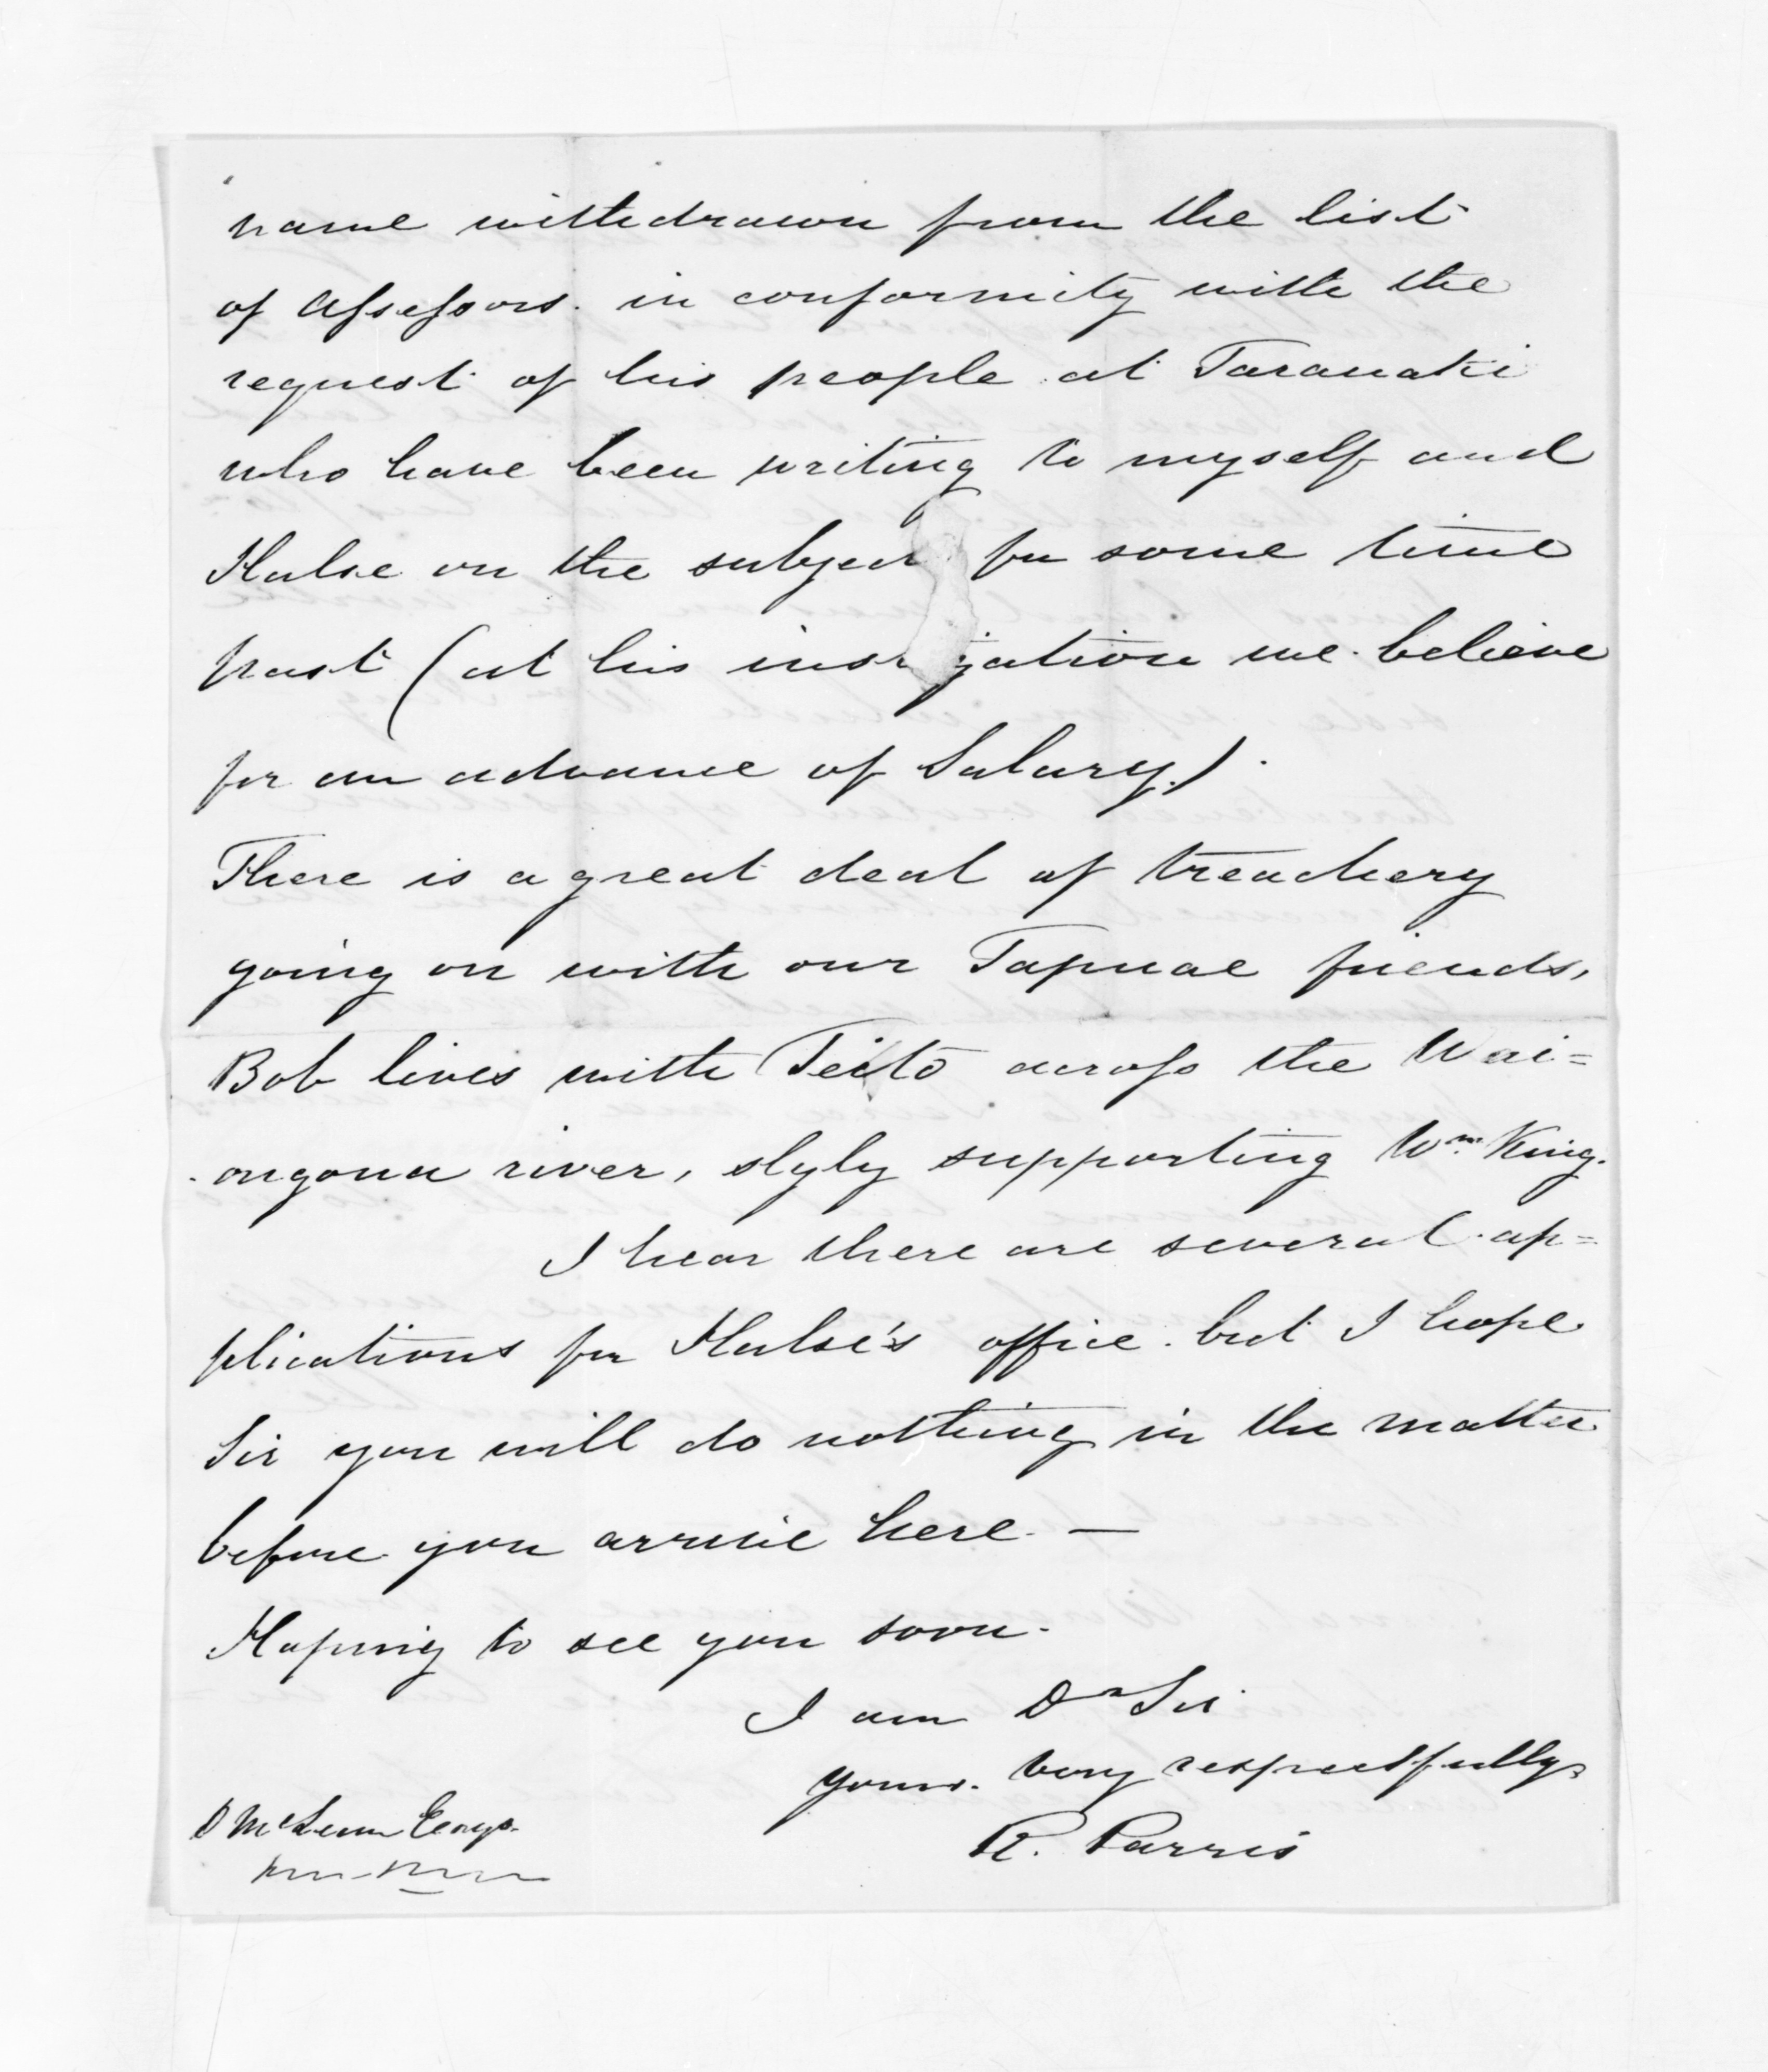 name withdrawn from the list
of Assessors. in conformity with the
request of his people at Taranaki
who have been writing to myself and
Halse on the subject for some time
past (at his inst gation we believe
for an advance of Salary.)
There is a great deal of treachery
going on with our Tapuae friends,
Bob lives with Teito across the Wai=
ongona river, slyly supporting Wm. King.
I hear there are several ap=
plications for Halse's office. but I hope
Sir you will do nothing in the matter
before you arrive here. —
Hoping to see you soon.
I am Dr Sir
yours. very respectfully
R. Parris
D McLean Esqr.